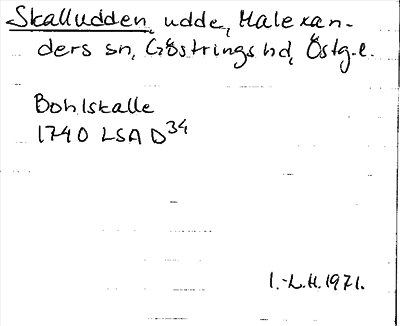 Skalludden, udde, Malexan-
ders sn, Göstrings hd, Östg.l.
Bohlskalle
1740 LSA D34
I.-L.H.1971.